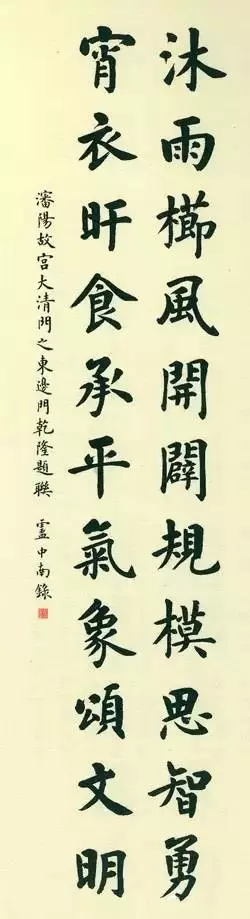 沐雨櫛風開闢規模思智勇
宵衣旰食承平氣象頌文明
瀋陽故宮大清門之東邊門乾隆題聯 盧中南錄